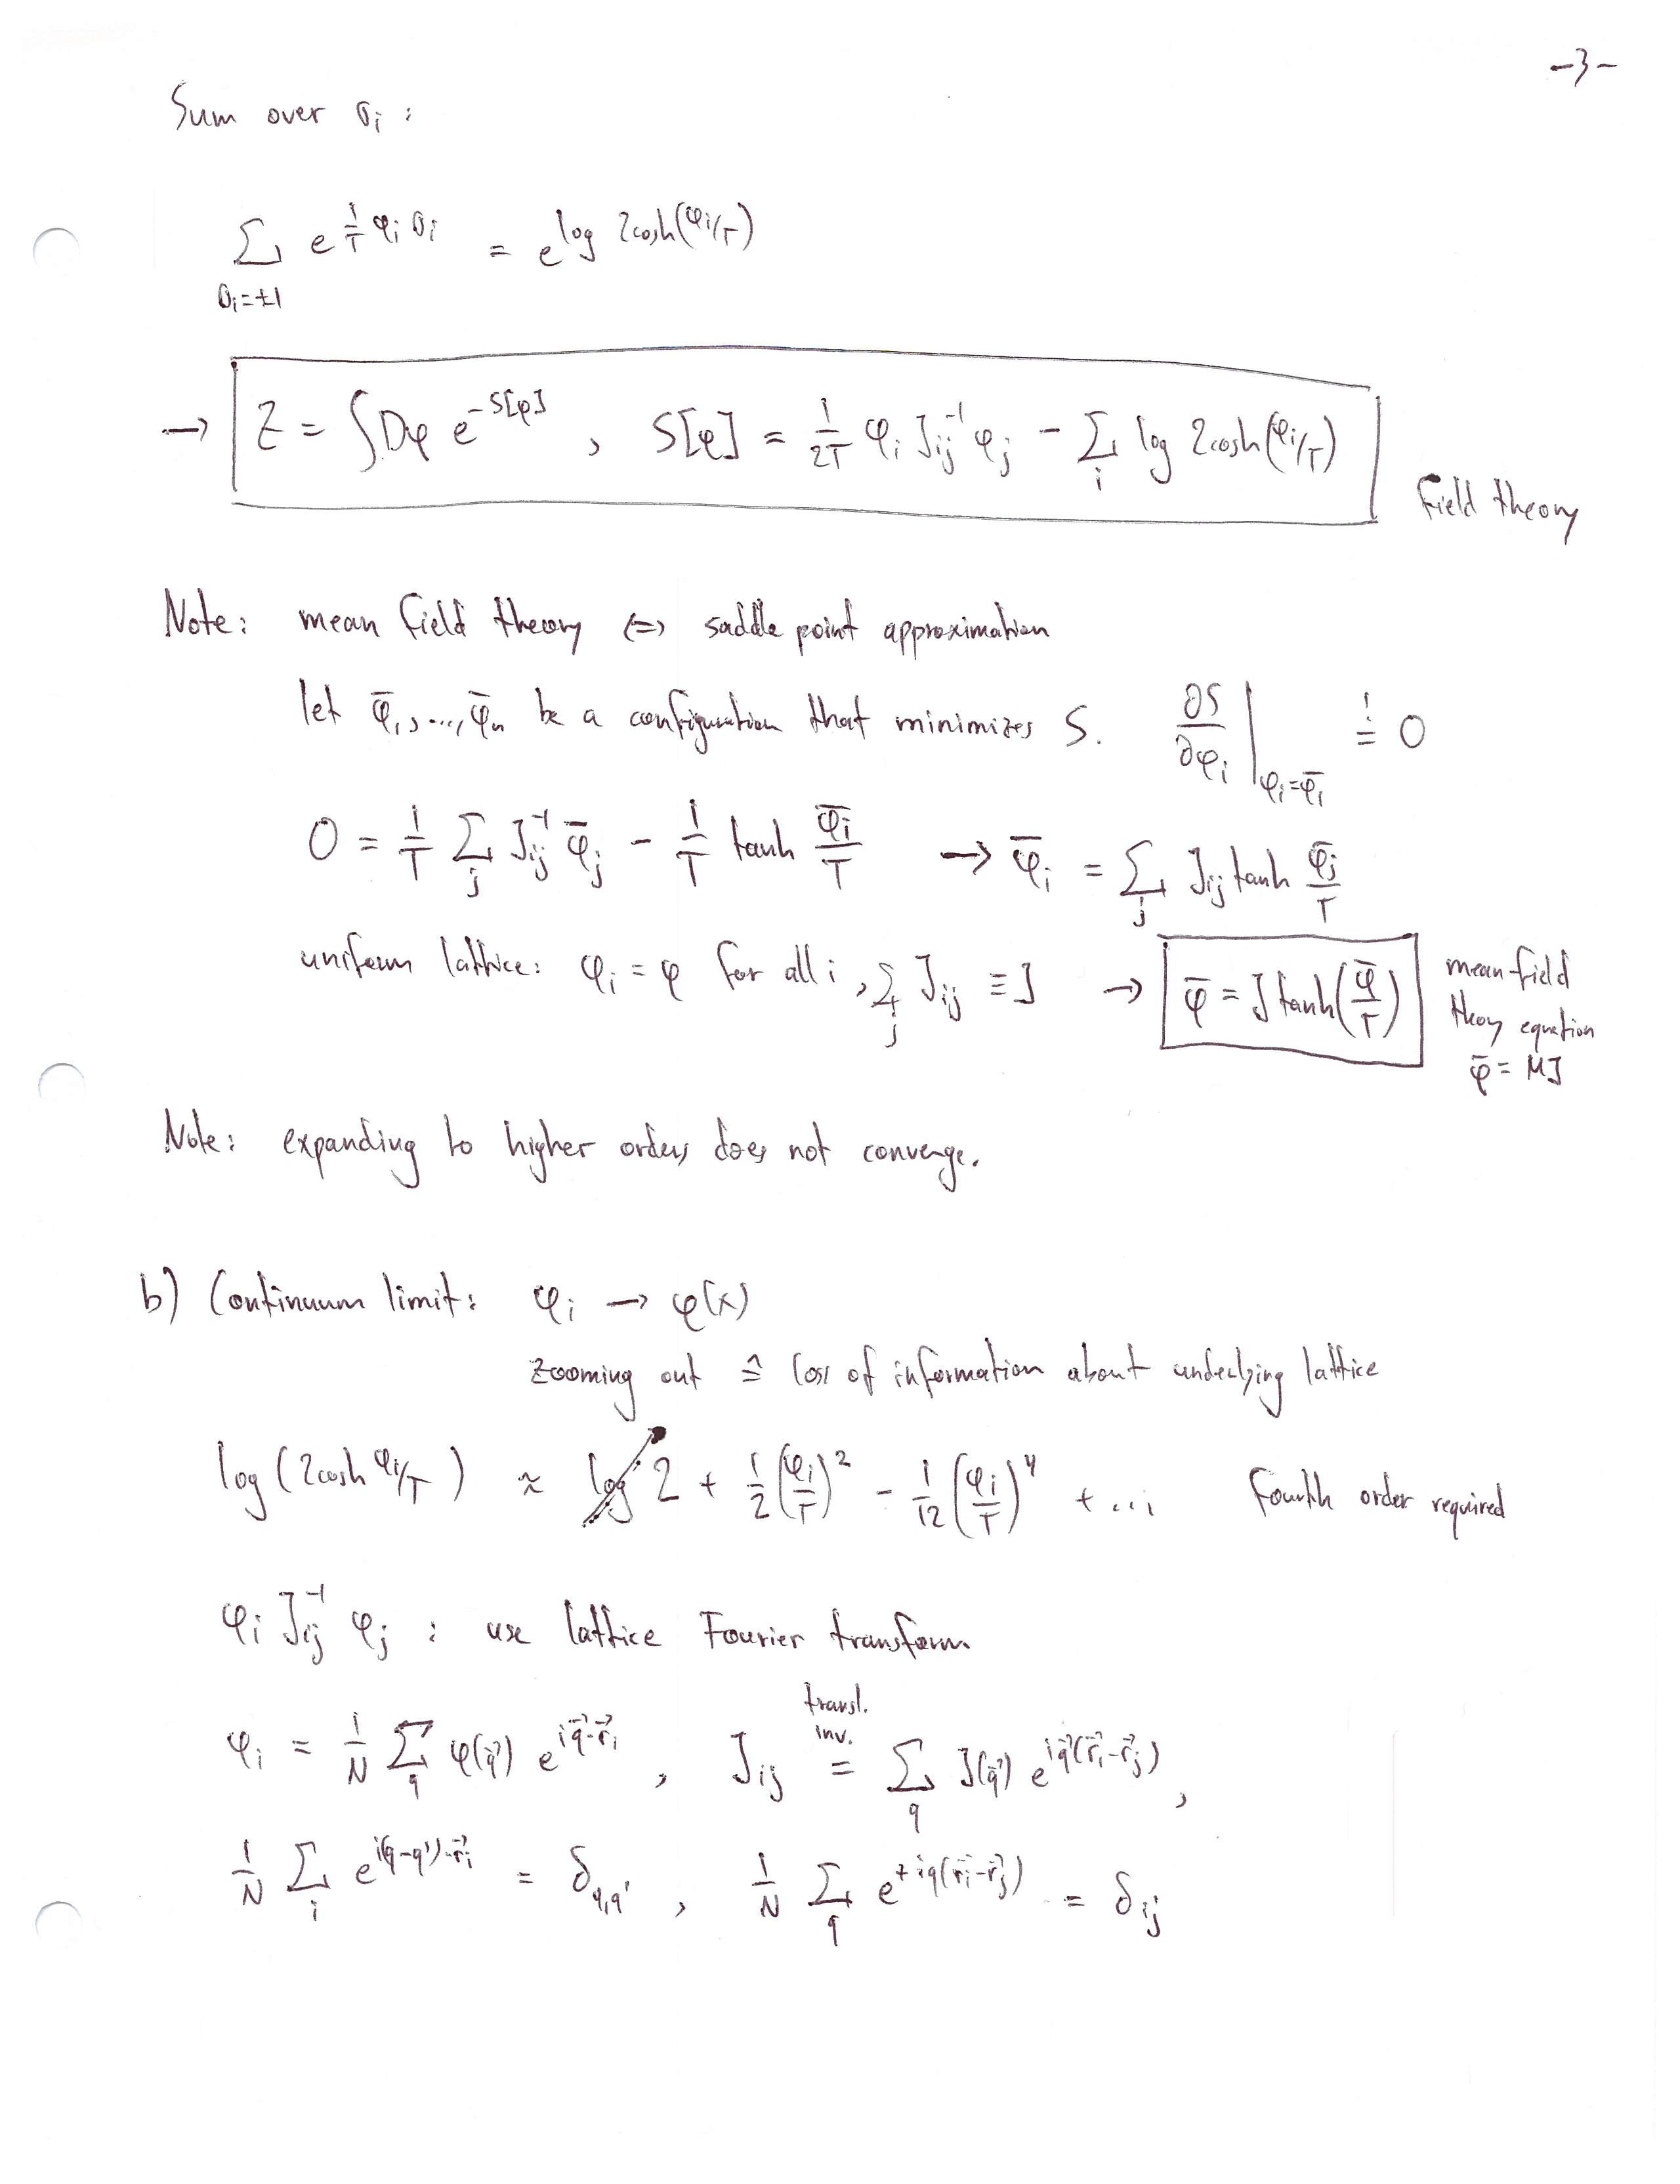 -3-
Sum over σᵢ :
∑_{σᵢ=±1} e^{1/T φᵢ σᵢ} = e^{log 2cosh(φᵢ/T)}
→ Z = ∫Dφ e^{-S[φ]} , S[φ] = 1/2T φᵢ J⁻¹ᵢⱼ φⱼ - ∑ᵢ log 2cosh(φᵢ/T)
field theory
Note: mean field theory ⇔ saddle point approximation
let φ̄₁,...,φ̄ₙ be a configuration that minimizes S. ∂S/∂φᵢ |_{φᵢ=φ̄ᵢ} =! 0
0 = 1/T ∑ⱼ J⁻¹ᵢⱼ φ̄ⱼ - 1/T tanh φ̄ᵢ/T → φ̄ᵢ = ∑ⱼ Jᵢⱼ tanh φ̄ⱼ/T
uniform lattice: φᵢ = φ for all i , ∑ⱼ Jᵢⱼ ≡ J → φ̄ = J tanh(φ̄/T)
mean-field
theory equation
φ̄ = MJ
Note: expanding to higher orders does not converge.
b) Continuum limit: φᵢ → φ(x)
zooming out ≙ loss of information about underlying lattice
log(2cosh φᵢ/T) ≈ log 2 + 1/2 (φᵢ/T)² - 1/12 (φᵢ/T)⁴ + ... fourth order required
φᵢ J⁻¹ᵢⱼ φⱼ : use lattice Fourier transform
transl.
inv.
φᵢ = 1/N ∑_q φ(q⃗) e^{iq⃗·r⃗ᵢ} , Jᵢⱼ = ∑_q J(q⃗) e^{iq⃗(r⃗ᵢ-r⃗ⱼ)} ,
1/N ∑ᵢ e^{i(q-q')·r⃗ᵢ} = δ_{q,q'} , 1/N ∑_q e^{+iq(r⃗ᵢ-r⃗ⱼ)} = δᵢⱼ